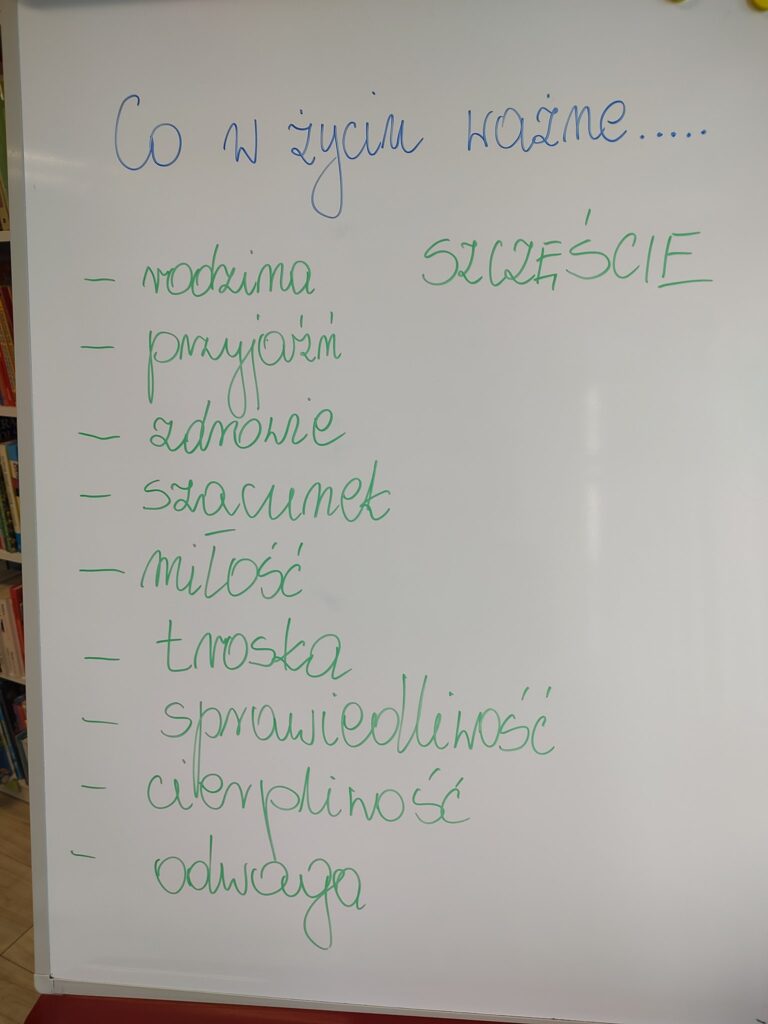 Co w życiu ważne.....
- rodzina SZCZĘŚCIE
- przyjaźń
- zdrowie
- szacunek
- miłość
- troska
- sprawiedliwość
- cierpliwość
- odwaga